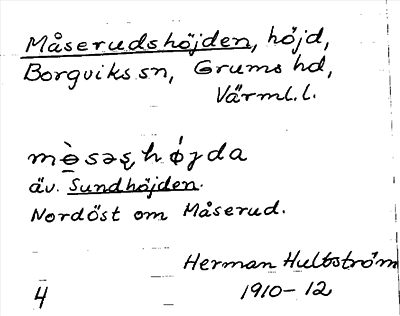 Måserudshöjden, höjd,
Borgviks sn, Grums hd,
Värml. l.
mo̠̒səʂhǿjda
äv. Sundhöjden.
Nordöst om Måserud.
Herman Hultström
4 1910-12